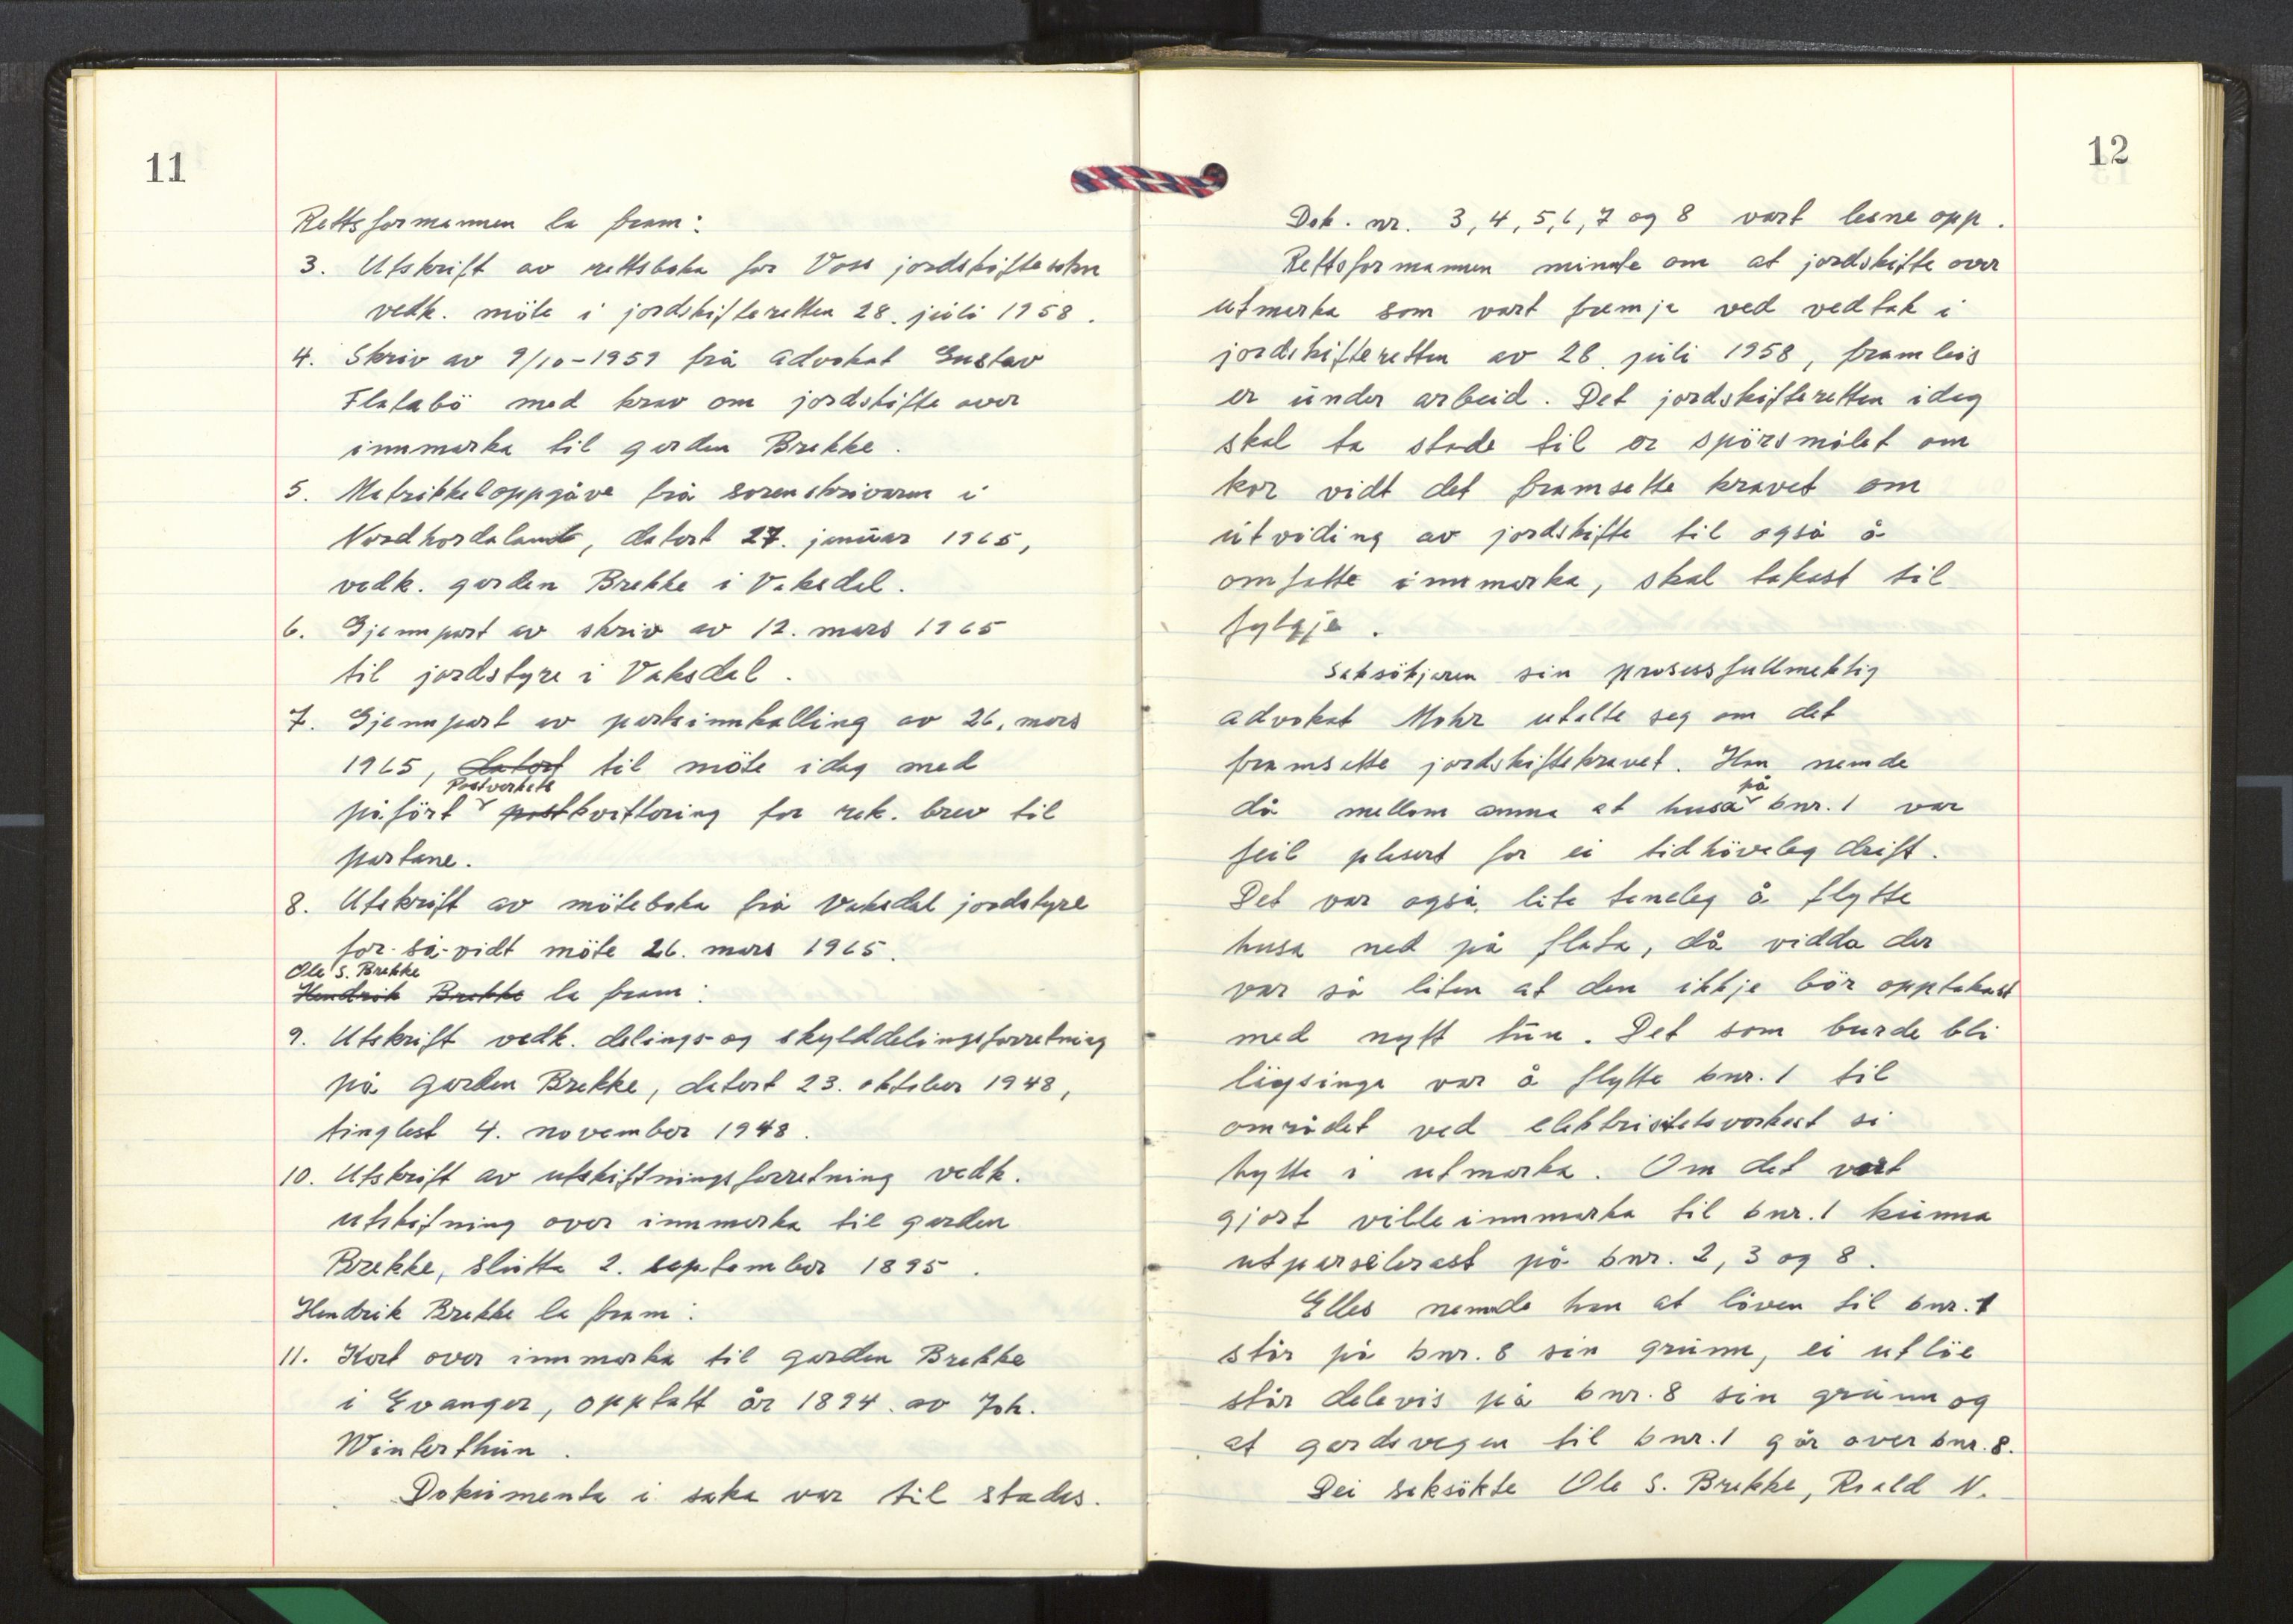 11
Rettsformannen la fram:
3. Utskrift av rettsboka for Voss jordskiftesokn
vedk. möte i jordskifteretten 28. juli 1958.
4. Skriv av 9/10-1959 frå advokat Gustav
Flatabö med krav om jordskifte over
innmarka til garden Brekke.
5. Matrikkeloppgåve frå sorenskrivaren i
Nordhordaland, datert 27. januar 1965,
vedk. garden Brekke i Vaksdal.
6. Gjennpart av skriv av 12. mars 1965
til jordstyre i Vaksdal.
7. Gjennpart av partsinnkalling av 26. mars
1965, datert til möte idag med
Postverkets
påfört postkvittering for rek. brev til
partane.
8. Utskrift av möteboka frå Vaksdal jordstyre
for-så-vidt möte 26. mars 1965.
Ole S. Brekke
Hendrik Brekke la fram:
9. Utskrift vedk. delings- og skylddelingsforretning
på garden Brekke, datert 23. oktober 1948,
tinglest 4. november 1948.
10. Utskrift av utskiftningsforretning vedk.
utskifning over innmarka til garden
Brekke, slutta 2. september 1895.
Hendrik Brekke la fram:
11. Kart over innmarka til garden Brekke
i Evanger, opptatt år 1894 av Joh.
Winterthun.
Dokumenta i saka var til stades.
12
Dok. nr. 3, 4, 5, 6, 7 og 8 vart lesne opp.
Rettsformannen minnte om at jordskifte over
utmarka som vart fremja ved vedtak i
jordskifteretten av 28. juli 1958, framleis
er under arbeid. Det jordskifteretten idag
skal ta stode til er spörsmålet om
kor vidt det framsette kravet om
utviding av jordskifte til også å
omfatte innmarka, skal takast til
fylgje.
Saksökjaren sin prosessfullmektig
advokat Mohr utalte seg om det
framsette jordskiftekravet. Han nemde
på
då mellom anna at husa bnr. 1 var
feil plasert for ei tidhöveleg drift.
Det var også lite teneleg å flytte
husa ned på flata, då vidda der
var så liten at den ikkje bör opptakast
med nytt tun. Det som burde bli
löysinga var å flytte bnr. 1 til
området ved elektrisitetsverket si
hytte i utmarka. Om det vart
gjort ville innmarka til bnr. 1 kunna
utparselerast på bnr. 2, 3 og 8.
Elles nemnde han at löven til bnr. 1
står på bnr. 8 sin grunn, ei utlöe
står delevis på bnr. 8 sin grunn og
at gardsvegen til bnr. 1 går over bnr. 8.
Dei saksökte Ole S. Brekke, Roald N.